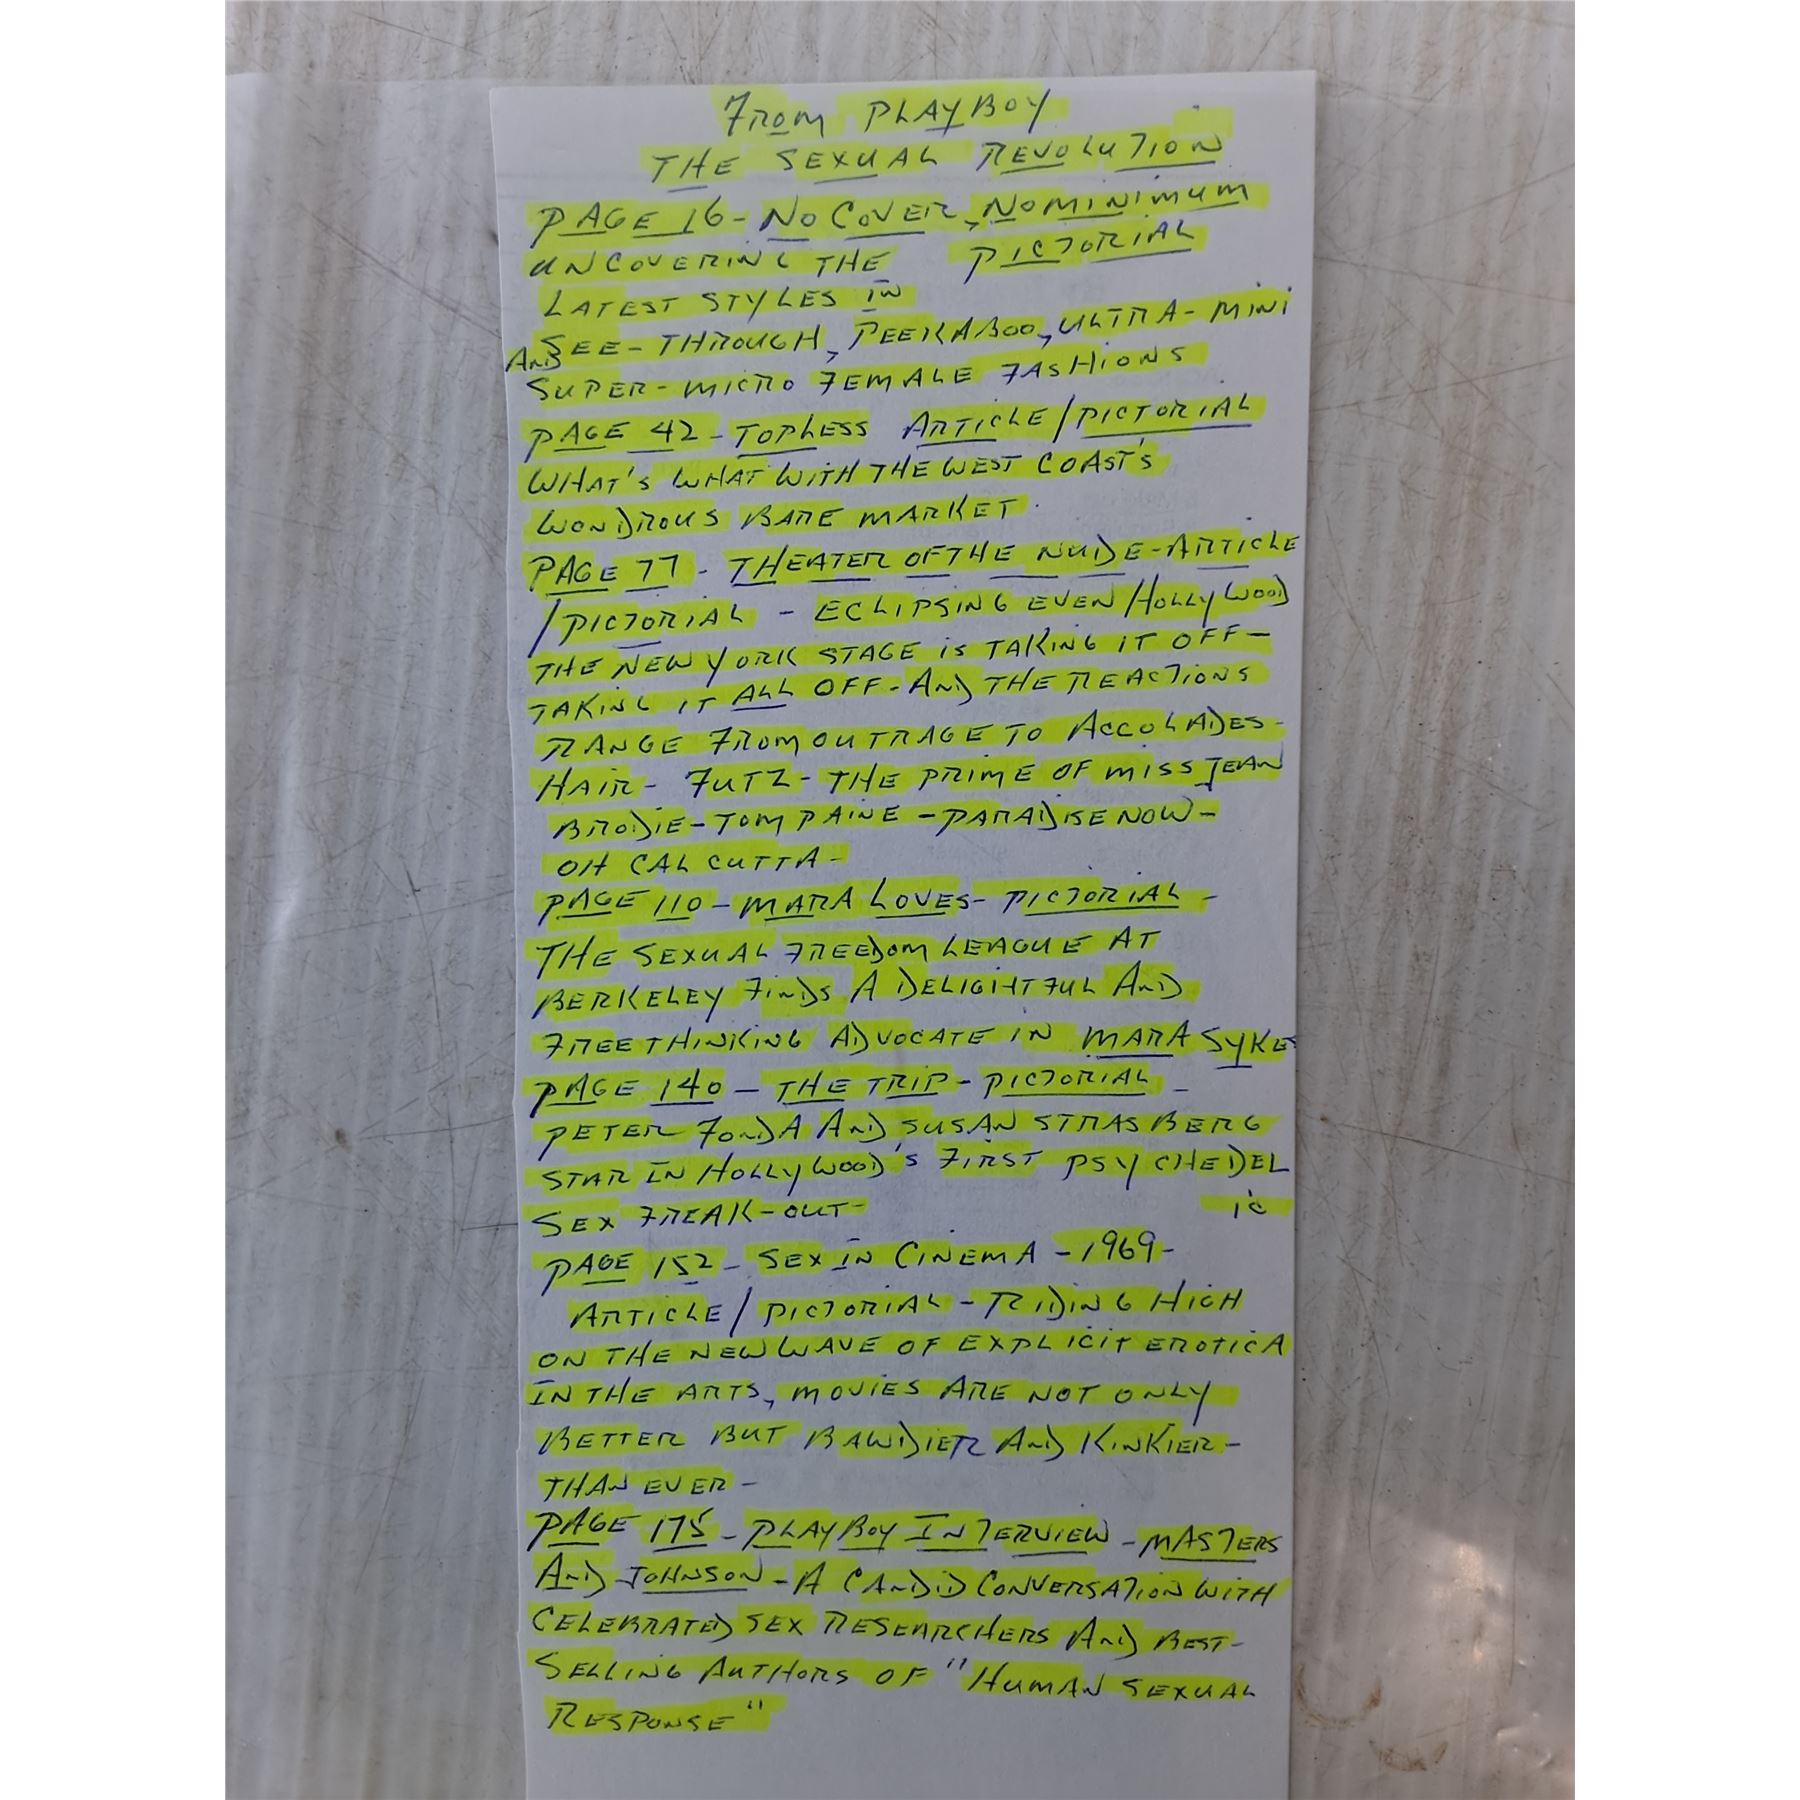 FROM PLAYBOY
THE SEXUAL REVOLUTION
PAGE 16 - NO COVER, NO MINIMUM
UNCOVERING THE PICTORIAL
LATEST STYLES IN
SEE-THROUGH, PEEKABOO, ULTRA-MINI
AND
SUPER-MICRO FEMALE FASHIONS
PAGE 42 - TOPLESS ARTICLE/PICTORIAL
WHAT'S WHAT WITH THE WEST COAST'S
WONDROUS BARE MARKET.
PAGE 77 - THEATER OF THE NUDE - ARTICLE
/PICTORIAL - ECLIPSING EVEN HOLLYWOOD
THE NEW YORK STAGE IS TAKING IT OFF -
TAKING IT ALL OFF - AND THE REACTIONS
RANGE FROM OUTRAGE TO ACCOLADES -
HAIR - FUTZ - THE PRIME OF MISS JEAN
BRODIE - TOM PAINE - PARADISE NOW -
OH CALCUTTA -
PAGE 110 - MARA LOVES - PICTORIAL -
THE SEXUAL FREEDOM LEAGUE AT
BERKELEY FINDS A DELIGHTFUL AND
FREETHINKING ADVOCATE IN MARA SYKES
PAGE 140 - THE TRIP - PICTORIAL -
PETER FONDA AND SUSAN STRASBERG
STAR IN HOLLYWOOD'S FIRST PSYCHEDEL
IC
SEX FREAK-OUT -
PAGE 152 - SEX IN CINEMA - 1969 -
ARTICLE/PICTORIAL - RIDING HIGH
ON THE NEW WAVE OF EXPLICIT EROTICA
IN THE ARTS, MOVIES ARE NOT ONLY
BETTER BUT BAWDIER AND KINKIER -
THAN EVER -
PAGE 175 - PLAYBOY INTERVIEW - MASTERS
AND JOHNSON - A CANDID CONVERSATION WITH
CELEBRATED SEX RESEARCHERS AND BEST-
SELLING AUTHORS OF "HUMAN SEXUAL
RESPONSE"